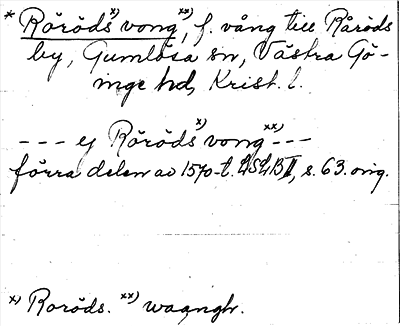 * Röröds x) vong xx), f. vång till Råröds
by, Gumlösa sn, Västra Gö-
inge hd, Krist. l.
--- ej Röröds x) vong xx) ---
förra delen av 1570-t. LSLB II, s. 63. orig.
x) Roröds. xx) waangh.